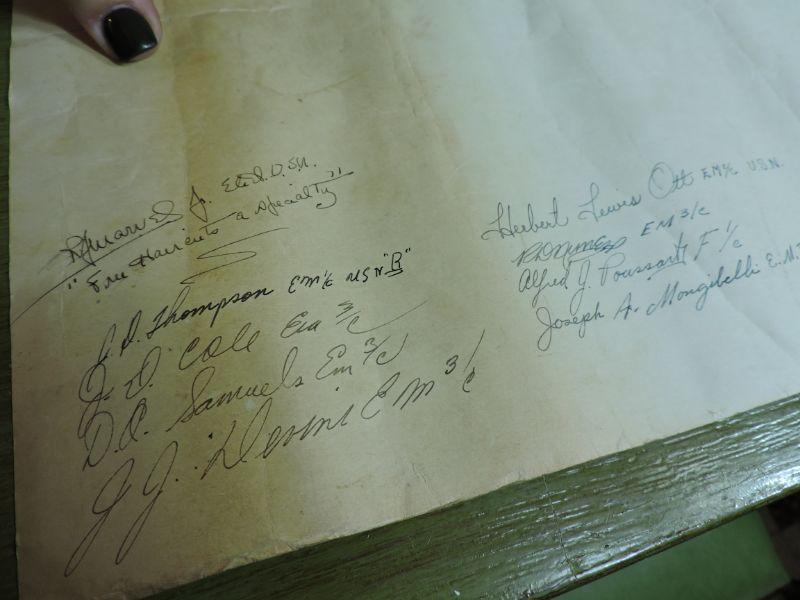 "Free Haircuts a specialty"
Thompson EM 1/c USN "R"
J. D. Cole Em 3/c
D.O. Samuels Em 3/c
J J. Devini EM 3/c
Herbert Lewis Ott EM 2/c U.S.N.
EM 3/c
Alfred J. Poussart F 1/c
Joseph A. Mongibelli E.M.